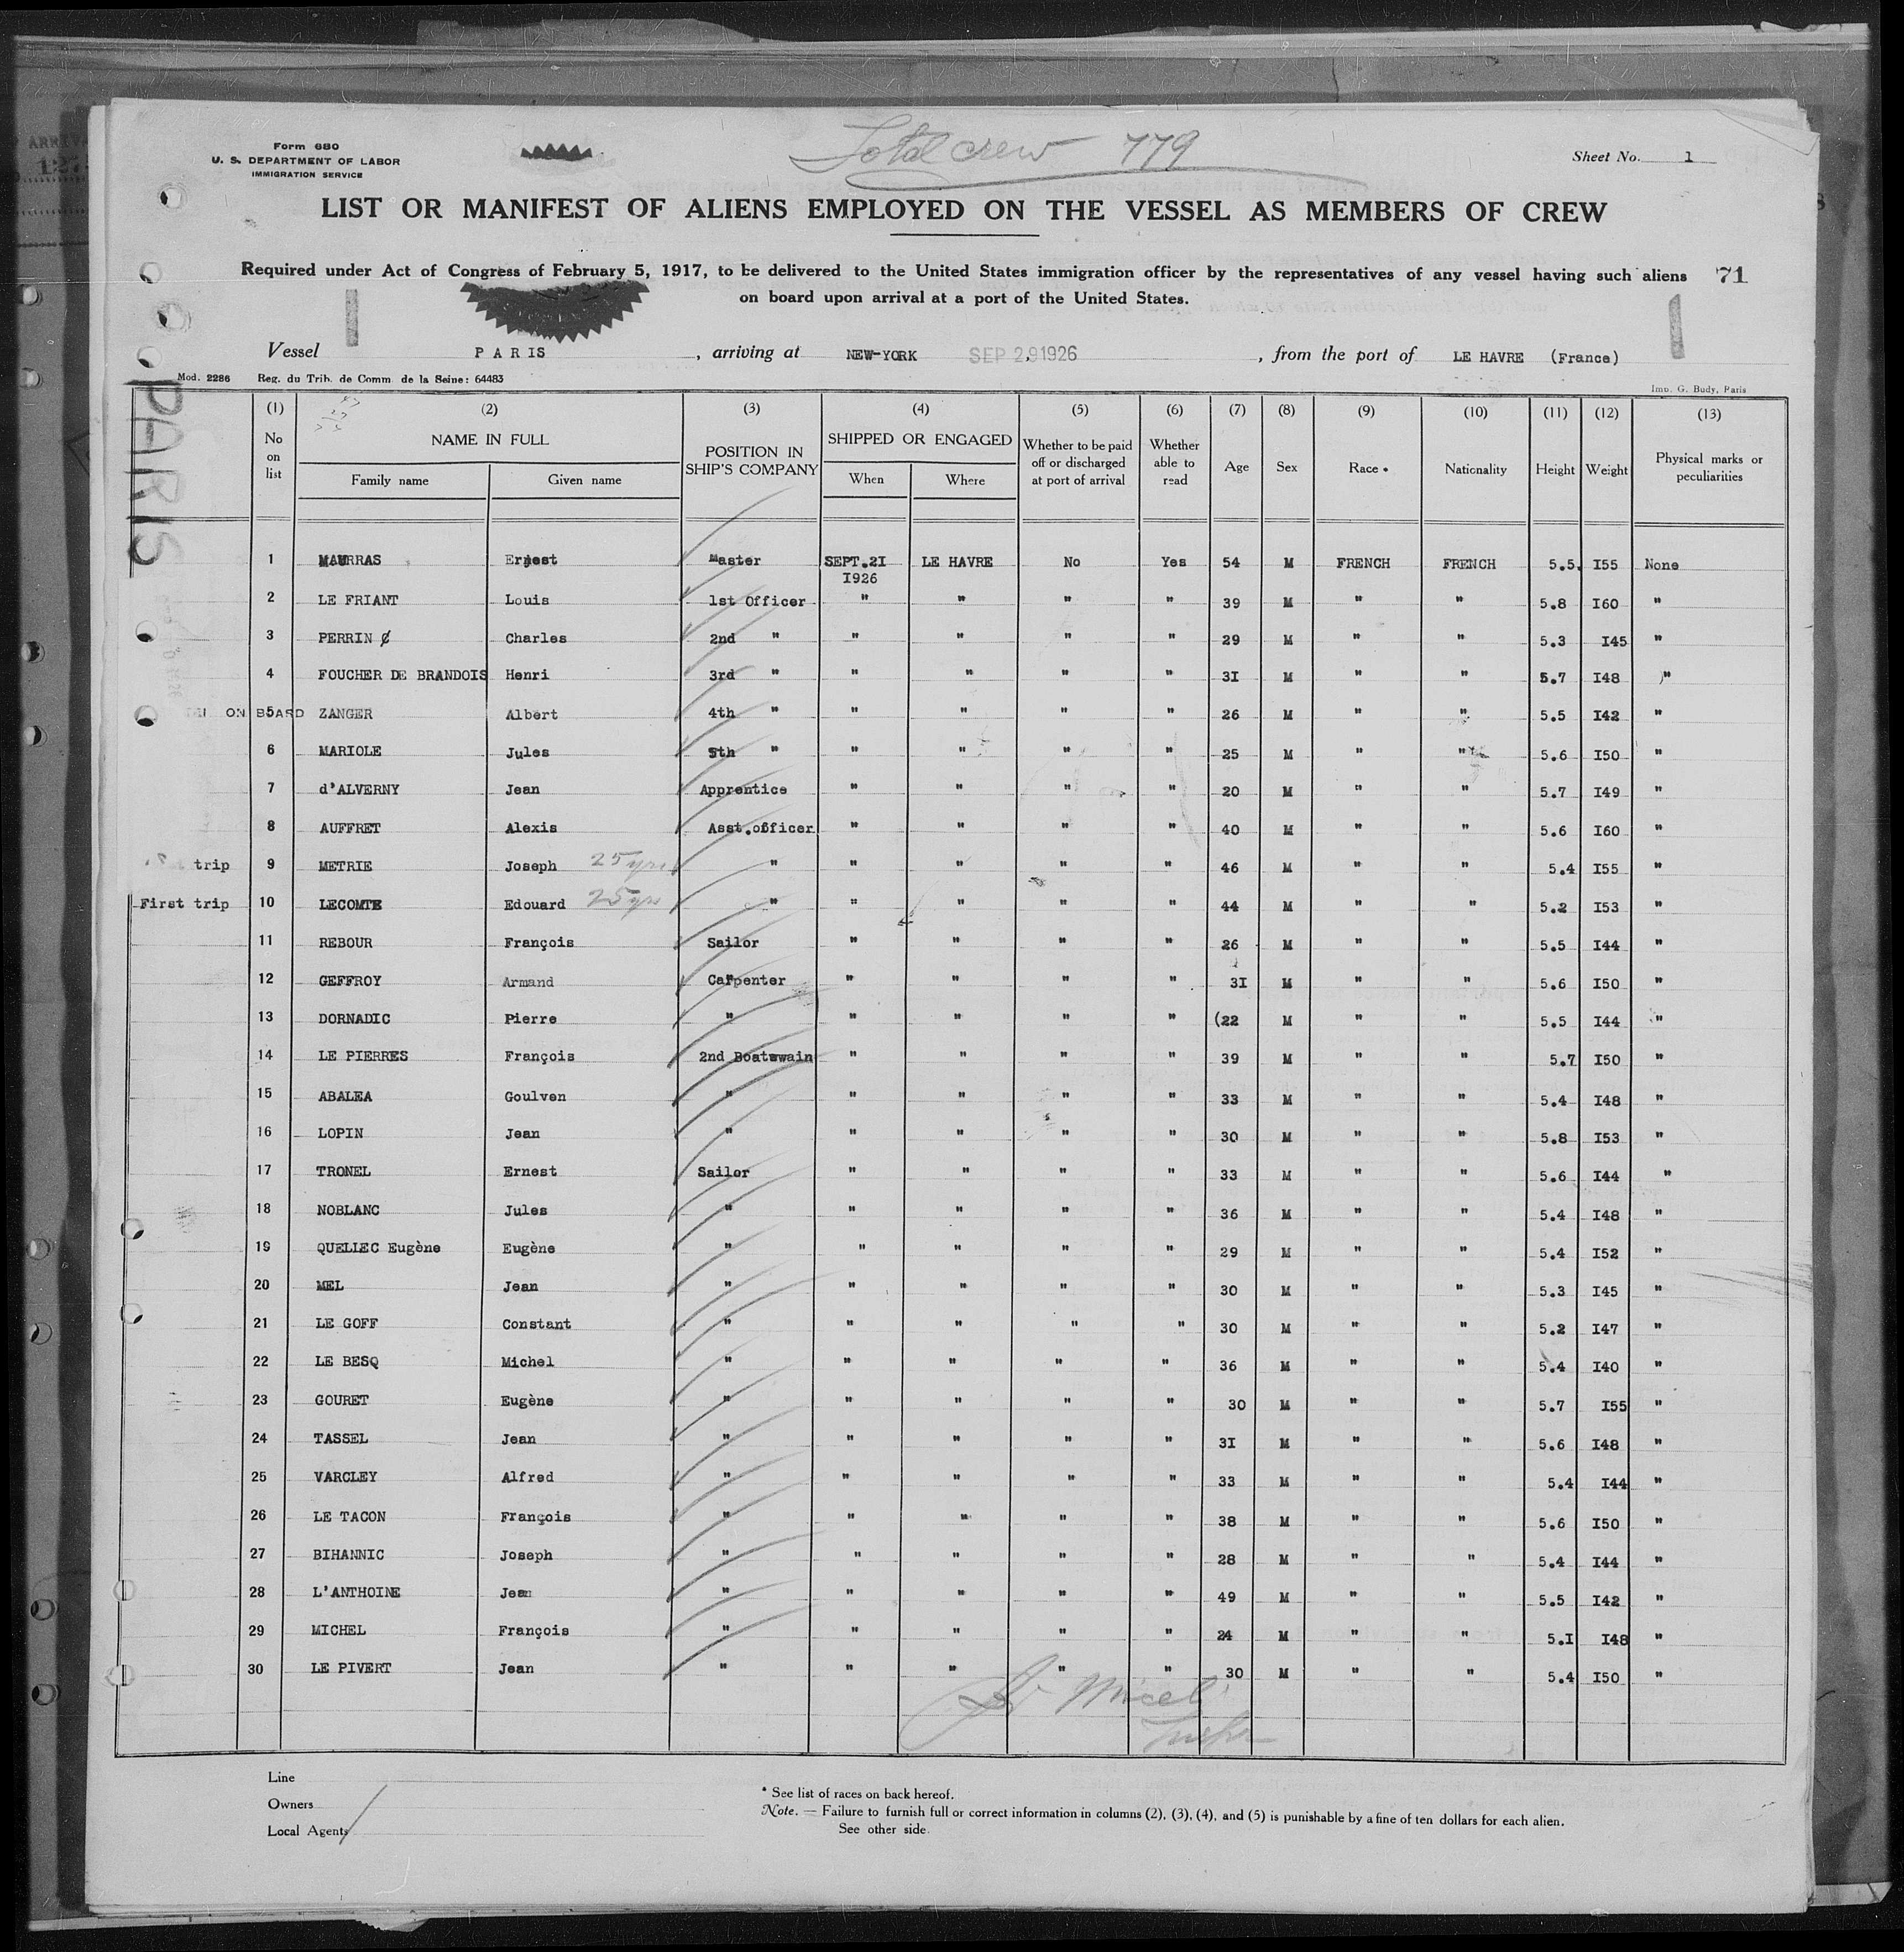 Form 680
U. S. DEPARTMENT OF LABOR
IMMIGRATION SERVICE
Total crew 779
Sheet No. 1
LIST OR MANIFEST OF ALIENS EMPLOYED ON THE VESSEL AS MEMBERS OF CREW
Required under Act of Congress of February 5, 1917, to be delivered to the United States immigration officer by the representatives of any vessel having such aliens 71
on board upon arrival at a port of the United States.
Vessel PARIS, arriving at NEW-YORK SEP 29 1926, from the port of LE HAVRE (France)
Mod. 2286 Reg. du Trib. de Comm. de la Seine: 64483 Imp. G. Budy, Paris
PARIS
(1) (2) (3) (4) (5) (6) (7) (8) (9) (10) (11) (12) (13)
No on list NAME IN FULL Family name Given name POSITION IN SHIP'S COMPANY SHIPPED OR ENGAGED When Where Whether to be paid off or discharged at port of arrival Whether able to read Age Sex Race * Nationality Height Weight Physical marks or peculiarities
1 MAURRAS Ernest Master SEPT.2I I926 LE HAVRE No Yes 54 M FRENCH FRENCH 5.5. I55 None
2 LE FRIANT Louis 1st Officer " " " " 39 M " " 5.8 I60 "
3 PERRIN Charles 2nd " " " " " 29 M " " 5.3 I45 "
4 FOUCHER DE BRANDOIS Henri 3rd " " " " " 3I M " " 5.7 I48 "
ON BOARD 5 ZANGER Albert 4th " " " " " 26 M " " 5.5 I42 "
6 MARIOLE Jules 5th " " " " " 25 M " " 5.6 I50 "
7 d'ALVERNY Jean Apprentice " " " " 20 M " " 5.7 I49 "
8 AUFFRET Alexis Asst.officer " " " " 40 M " " 5.6 I60 "
trip 9 METRIE Joseph 25 yrs " " " " " 46 M " " 5.4 I55 "
First trip 10 LECOMTE Edouard 25 yrs " " " " " 44 M " " 5.2 I53 "
11 REBOUR François Sailor " " " " 26 M " " 5.5 I44 "
12 GEFFROY Armand Carpenter " " " " 3I M " " 5.6 I50 "
13 DORNADIC Pierre " " " " " (22 M " " 5.5 I44 "
14 LE PIERRES François 2nd Boatswain " " " " 39 M " " 5.7 I50 "
15 ABALEA Goulven " " " " " 33 M " " 5.4 I48 "
16 LOPIN Jean " " " " " 30 M " " 5.8 I53 "
17 TRONEL Ernest Sailor " " " " 33 M " " 5.6 I44 "
18 NOBLANC Jules " " " " " 36 M " " 5.4 I48 "
19 QUELLEC Eugène Eugène " " " " " 29 M " " 5.4 I52 "
20 MEL Jean " " " " " 30 M " " 5.3 I45 "
21 LE GOFF Constant " " " " " 30 M " " 5.2 I47 "
22 LE BESQ Michel " " " " " 36 M " " 5.4 I40 "
23 GOURET Eugène " " " " " 30 M " " 5.7 I55 "
24 TASSEL Jean " " " " " 3I M " " 5.6 I48 "
25 VARCLEY Alfred " " " " " 33 M " " 5.4 I44 "
26 LE TACON François " " " " " 38 M " " 5.6 I50 "
27 BIHANNIC Joseph " " " " " 28 M " " 5.4 I44 "
28 L'ANTHOINE Jean " " " " " 49 M " " 5.5 I42 "
29 MICHEL François " " " " " 24 M " " 5.I I48 "
30 LE PIVERT Jean " " " " " 30 M " " 5.4 I50 "
Line
Owners
Local Agents
* See list of races on back hereof.
Note. — Failure to furnish full or correct information in columns (2), (3), (4), and (5) is punishable by a fine of ten dollars for each alien.
See other side.